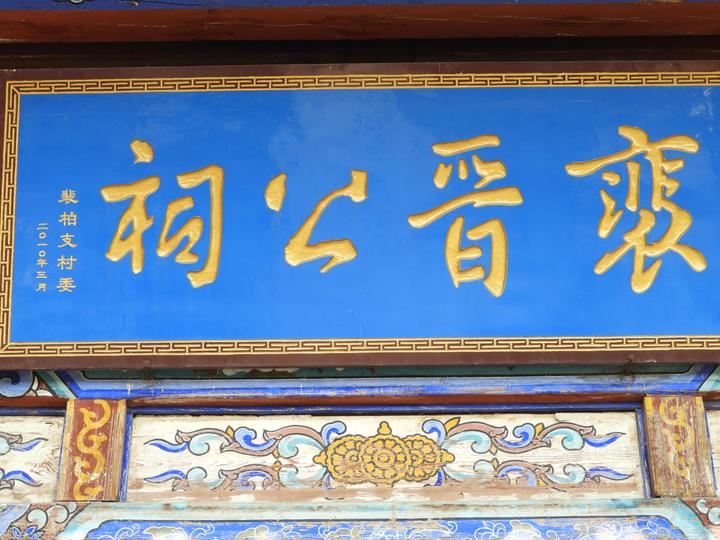 裴晋公祠
裴柏支村委
二〇一〇年三月